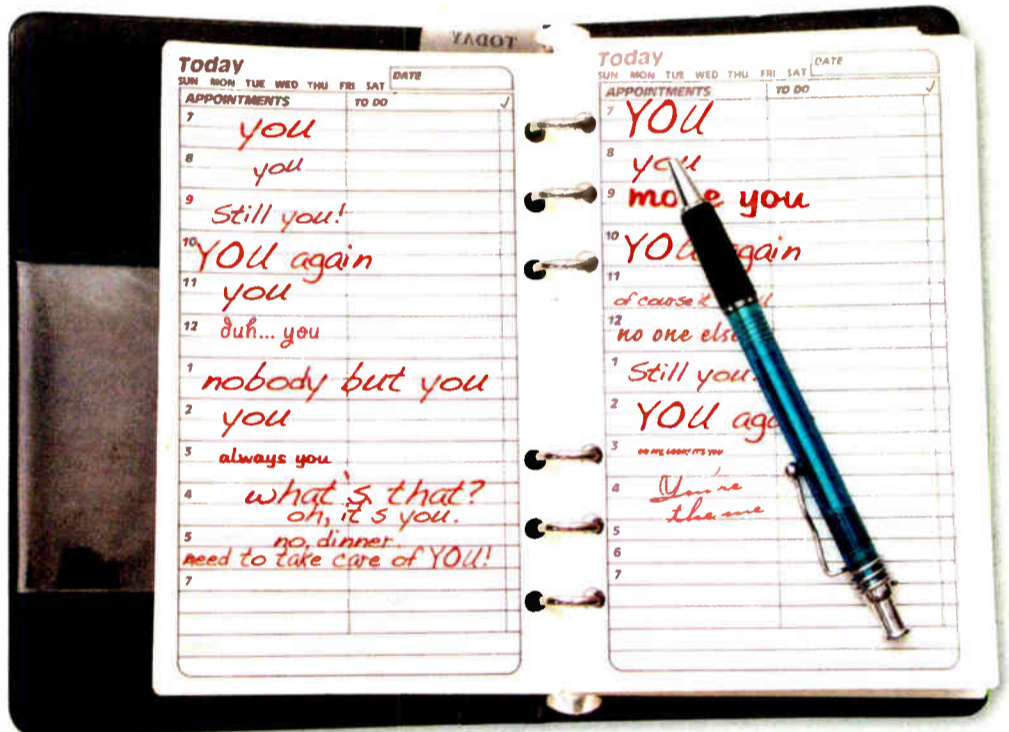 TODAY
Today
SUN MON TUE WED THU FRI SAT
DATE
APPOINTMENTS
TO DO
7
you
8
you
9
Still you!
10
YOU again
11
you
12
duh... you
1
nobody but you
2
you
3
always you
4
what's that?
oh, it's you.
5
no, dinner
need to take care of YOU!
7
Today
SUN MON TUE WED THU FRI SAT
DATE
APPOINTMENTS
TO DO
7
YOU
8
you
9
more you
10
YOU again
11
of course it
12
no one else
1
Still you
2
YOU
3
OH MY, LOOK! IT'S YOU
4
You're
the me
5
6
7